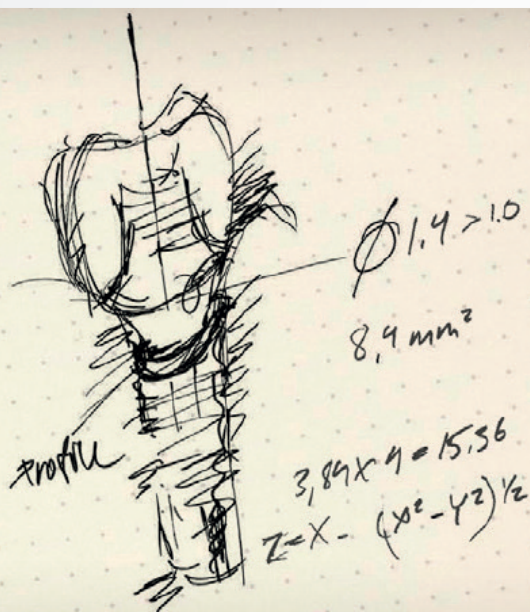 Ø 1.4 > 1.0
8,4 mm²
profile
3,84 x 4 = 15.36
z = x - (x² - y²)½